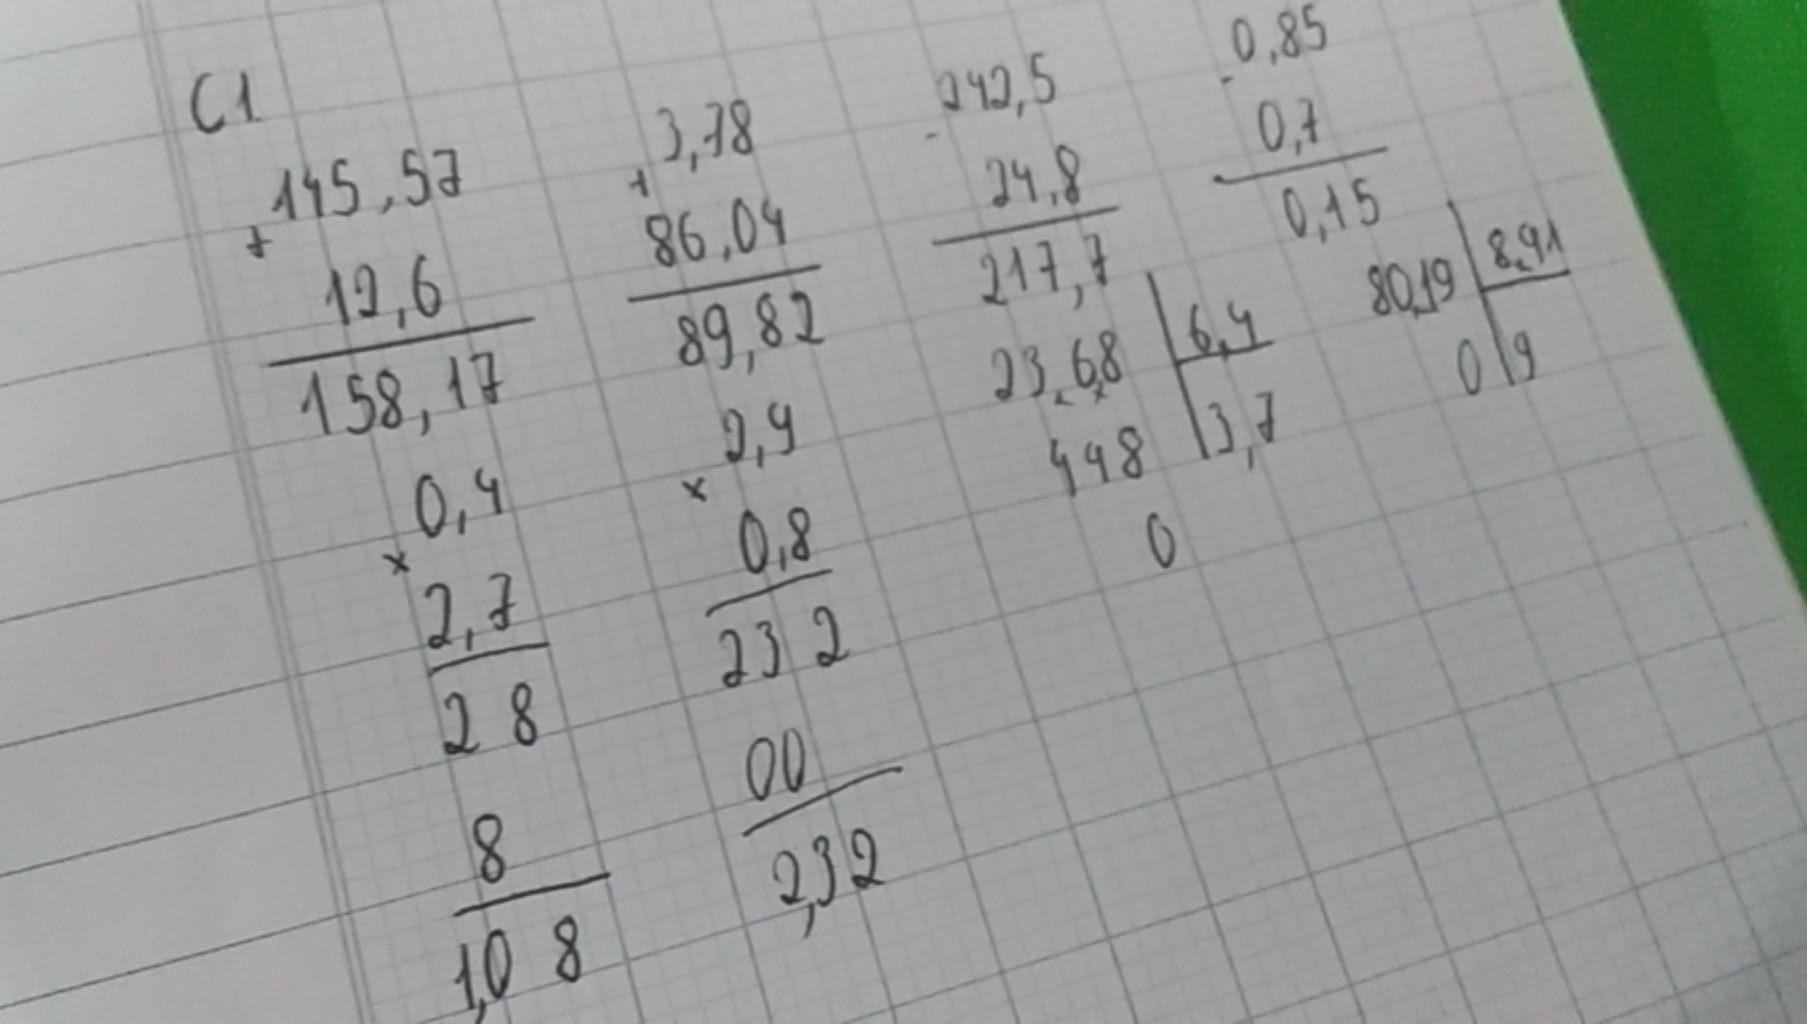 C1
145,57
+
12,6
158,17
3,78
+
86,04
89,82
242,5
-
24,8
217,7
0,85
-
0,7
0,15
0,4
x
2,7
2 8
8
1,0 8
2,9
x
0,8
23 2
00
2,32
23,68 6,4
448 3,7
0
80,19 8,91
0 9